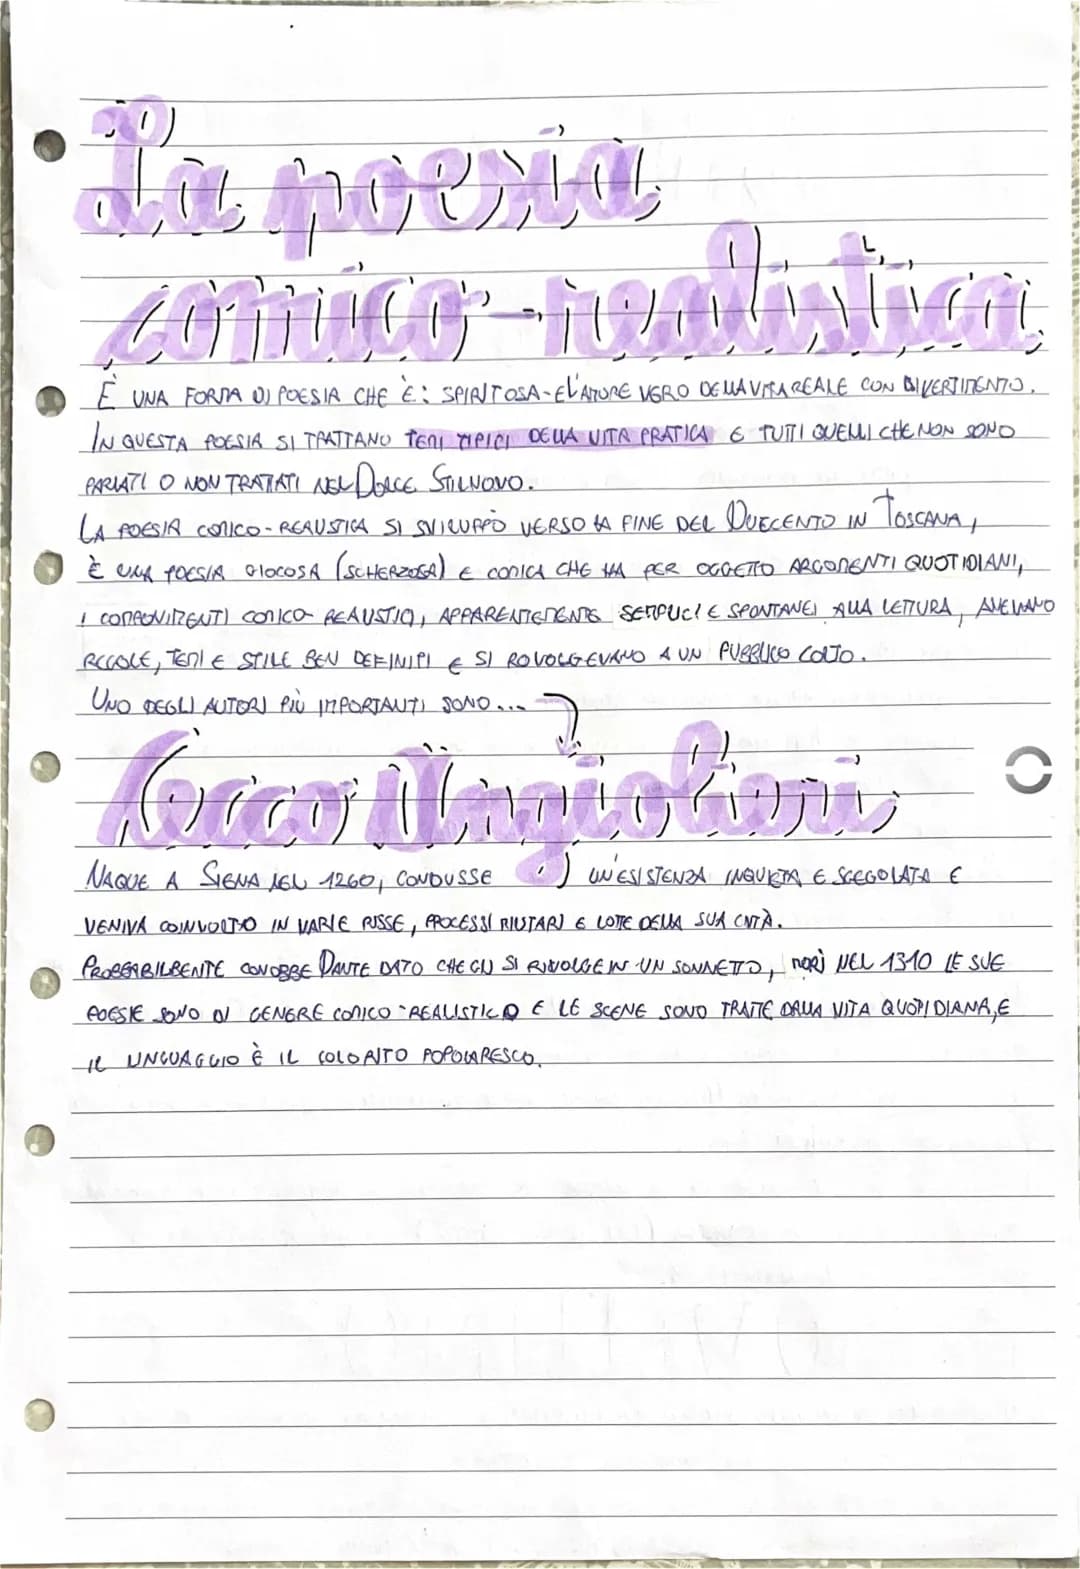 La poesia
comico-realistica
È UNA FORMA DI POESIA CHE È: SPIRITOSA-E L'AMORE VERO DELLA VITA REALE CON DIVERTIMENTO.
IN QUESTA POESIA SI TRATTANO TEMI TIPICI DELLA VITA PRATICA E TUTTI QUELLI CHE NON SONO
PARLATI O NON TRATTATI NEL DOLCE STILNOVO.
LA POESIA COMICO-REALISTICA SI SVILUPPÒ VERSO LA FINE DEL DUECENTO IN TOSCANA,
È UNA POESIA GIOCOSA (SCHERZOSA) E COMICA CHE HA PER OGGETTO ARGOMENTI QUOTIDIANI,
I COMPONIMENTI COMICO-REALISTICI, APPARENTEMENTE SEMPLICI E SPONTANEI ALLA LETTURA, AVEVANO
REGOLE, TEMI E STILE BEN DEFINITI E SI RIVOLGEVANO A UN PUBBLICO COLTO.
UNO DEGLI AUTORI PIÙ IMPORTANTI SONO...
Cecco Angiolieri
NAQUE A SIENA NEL 1260, CONDUSSE UN'ESISTENZA INQUIETA E SREGOLATA E
VENIVA COINVOLTO IN VARIE RISSE, PROCESSI MILITARI E LOTTE DELLA SUA CITTÀ.
PROBABILMENTE CONOBBE DANTE DATO CHE GLI SI RIVOLGE IN UN SONNETTO, MORÌ NEL 1310 LE SUE
POESIE SONO DI GENERE COMICO-REALISTICO E LE SCENE SONO TRATTE DALLA VITA QUOTIDIANA, E
IL LINGUAGGIO È IL COLORITO POPOLARESCO.